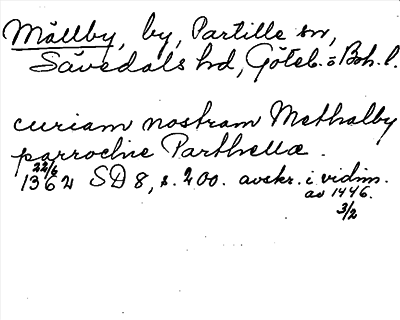 Mällby, by, Partille sn,
Sävedals hd, Göteb. o Boh. l.
curiam nostram Methalby
parrochie Parthella.
22/6
1362 SD 8, s. 200. avskr. i vidim.
av 1446.
3/2